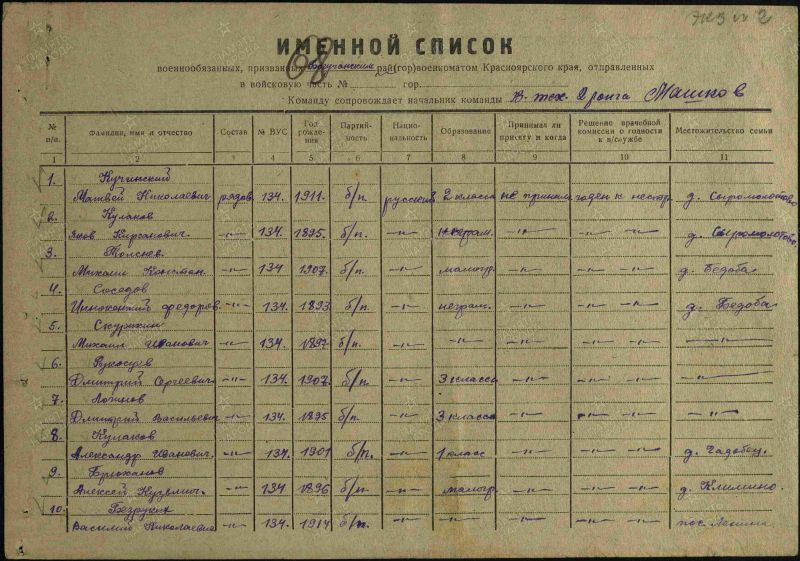 экз № 2
ИМЕННОЙ СПИСОК
68
военнообязанных, призванных Богучанским рай(гор)военкоматом Красноярского края, отправленных
в войсковую часть № гор.
Команду сопровождает начальник команды в. тех. 2 ранга Машков
№ п/п. Фамилия, имя и отчество Состав № ВУС Год рождения Партийность Национальность Образование Принимал ли присягу и когда Решение врачебной комиссии о годности к в/службе Местожительство семьи
1 2 3 4 5 6 7 8 9 10 11
1. Кучинский
Матвей Николаевич рядов. 134. 1911. б/п. русский 2 класса не приним. годен к нестр. д. Сыромолотово
2. Кулаков
Яков Кирсанович. —"— 134. 1895. б/п. —"— неграм. —"— —"— —"— д. Сыромолотово.
3.
Михаил Констан. —"— 134 1907. б/п. —"— малогр. —"— —"— —"— д. Бедоба
4. Соседов
Иннокентий Федоров. —"— 134. 1893. б/п. —"— неграм. —"— —"— —"— д. Бедоба
5. Скурихин
Михаил Иванович —"— 134. 1897. б/п. —"— —"— —"— —"— —"— —"—
6. Рукосуев
Дмитрий Сергеевич. —"— 134. 1907. б/п. —"— 3 класса —"— —"— —"— —"—
7. Логинов
Дмитрий Васильевич —"— 134. 1895 б/п. —"— 3 класса —"— —"— —"— —"—
8. Кулаков
Александр Иванович. —"— 134. 1901 б/п. —"— 1 класс —"— —"— —"— д. Чадобец.
9. Брюханов
Алексей Кузьмич. —"— 134 1896 б/п —"— малогр. —"— —"— —"— д. Климино.
10. Безруких
Василий Николаевич —"— 134. 1914 б/п. —"— —"— —"— —"— —"— пос. Ленина